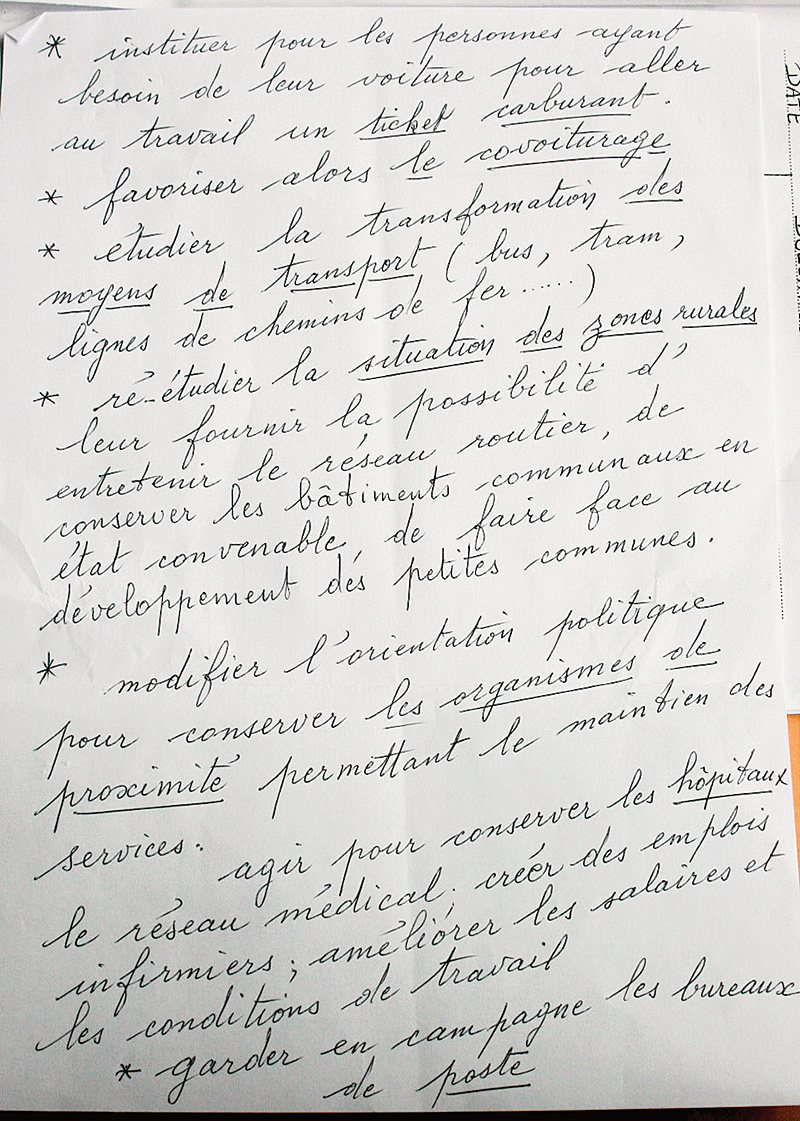 * instituer pour les personnes ayant
besoin de leur voiture pour aller
au travail un ticket carburant.
* favoriser alors le covoiturage
* étudier la transformation des
moyens de transport (bus, tram,
lignes de chemins de fer......)
* ré-étudier la situation des zones rurales
leur fournir la possibilité d'
entretenir le réseau routier, de
conserver les bâtiments communaux en
état convenable, de faire face au
développement des petites communes.
* modifier l'orientation politique
pour conserver les organismes de
proximité permettant le maintien des
services.
agir pour conserver les hôpitaux
le réseau médical; créer des emplois
infirmiers; améliorer les salaires et
les conditions de travail
* garder en campagne les bureaux
de poste
DATE